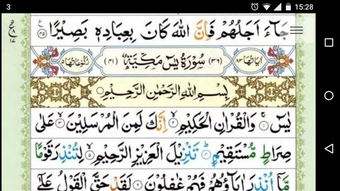 3 15:28
جَآءَ اَجَلُهُمْ فَاِنَّ اللّٰهَ كَانَ بِعِبَادِهٖ بَصِيْرًا
اٰيَاتُهَا ٨٣ (٣٦) سُوْرَةُ يٰسٓ مَكِّيَّةٌ (٤١) رُكُوْعَاتُهَا ٥
بِسْمِ اللّٰهِ الرَّحْمٰنِ الرَّحِيْمِ
يٰسٓ وَالْقُرْاٰنِ الْحَكِيْمِ اِنَّكَ لَمِنَ الْمُرْسَلِيْنَ عَلٰى
صِرَاطٍ مُّسْتَقِيْمٍ تَنْزِيْلَ الْعَزِيْزِ الرَّحِيْمِ لِتُنْذِرَ قَوْمًا
مَّآ اُنْذِرَ اٰبَآؤُهُمْ فَهُمْ غٰفِلُوْنَ لَقَدْ حَقَّ الْقَوْلُ عَلٰٓى